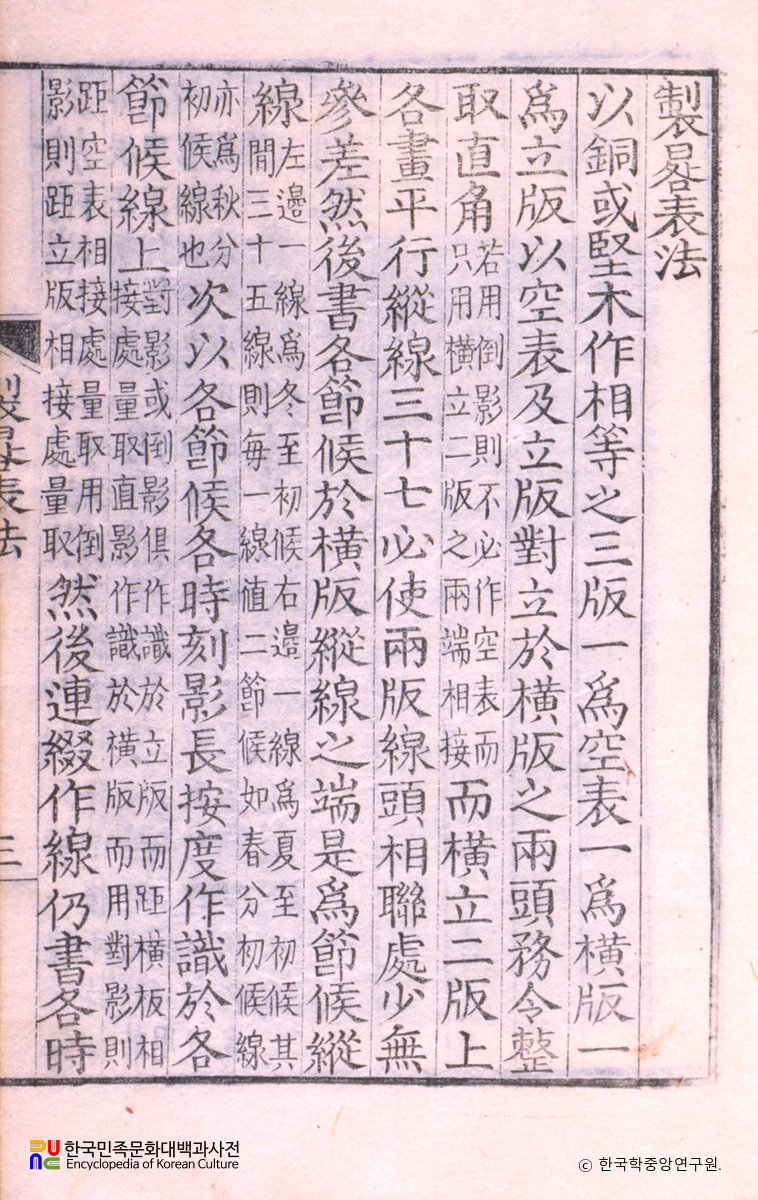 製晷表法
以銅或堅木作相等之三版一爲空表一爲橫版一
爲立版以空表及立版對立於橫版之兩頭務令整
取直角若用倒影則不必作空表而只用橫立二版之兩端相接而橫立二版上
各畫平行縱線三十七必使兩版線頭相聯處少無
參差然後書各節候於橫版縱線之端是爲節候縱
線左邊一線爲冬至初候右邊一線爲夏至初候其間三十五線則每一線値二節候如春分初候線
亦爲秋分初候線也次以各節候各時刻影長按度作識於各
節候線上對影或倒影俱作識於立版而距橫板相接處量取直影作識於橫版而用對影則
距空表相接處量取用倒影則距立版相接處量取然後連綴作線仍書各時
製晷表法
三
한국민족문화대백과사전
Encyclopedia of Korean Culture
ⓒ 한국학중앙연구원.